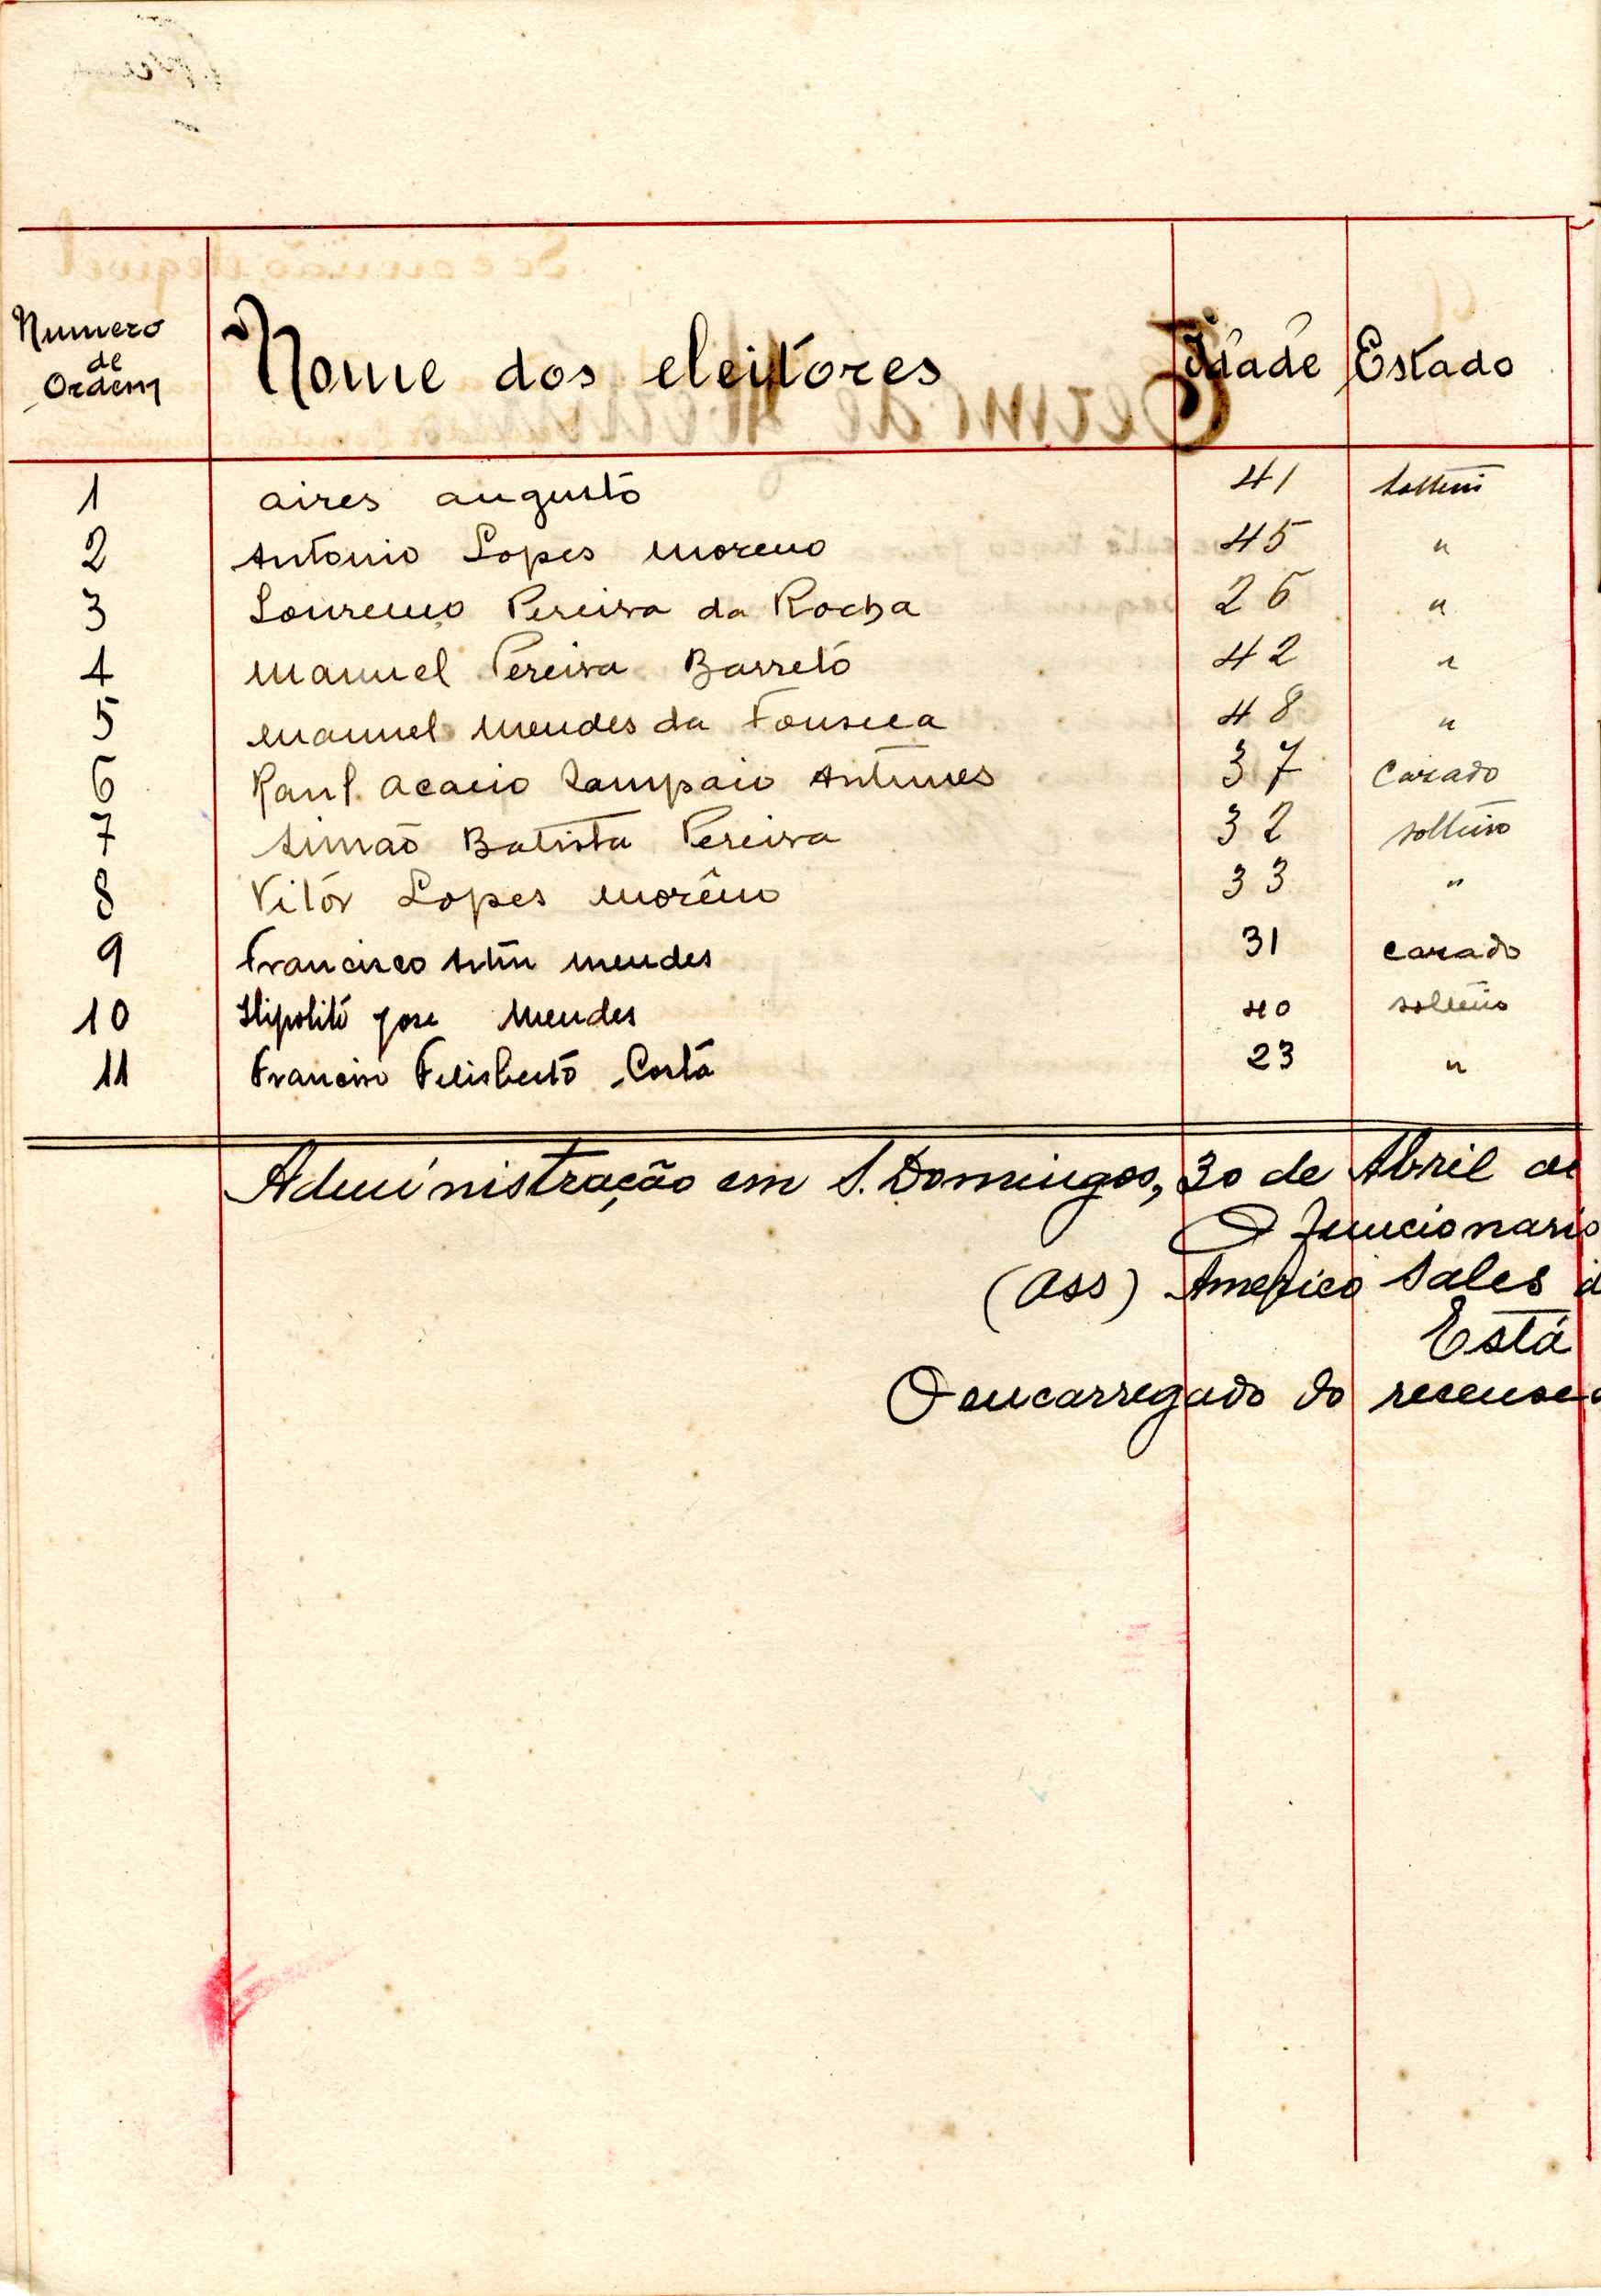 Numero
de
Ordem
Nome dos eleitores Idade Estado
1 aires augusto 41 solteiro
2 Antonio Lopes moreno 45 "
3 Lourenço Pereira da Rocha 26 "
4 manuel Pereira Barreto 42 "
5 manuel mendes da Fonseca 48 "
6 Raul acacio Sampaio Antunes 37 Casado
7 Simão Batista Pereira 32 solteiro
8 Vitór Lopes morêno 33 "
9 Francisco mendes 31 casado
10 Hipolito jose mendes 40 solteiro
11 Francisco Felisberto Costa 23 "
Administração em S. Domingos, 30 de Abril de
O funcionario
(Ass) Americo Sales d
Está
O encarregado do recensea